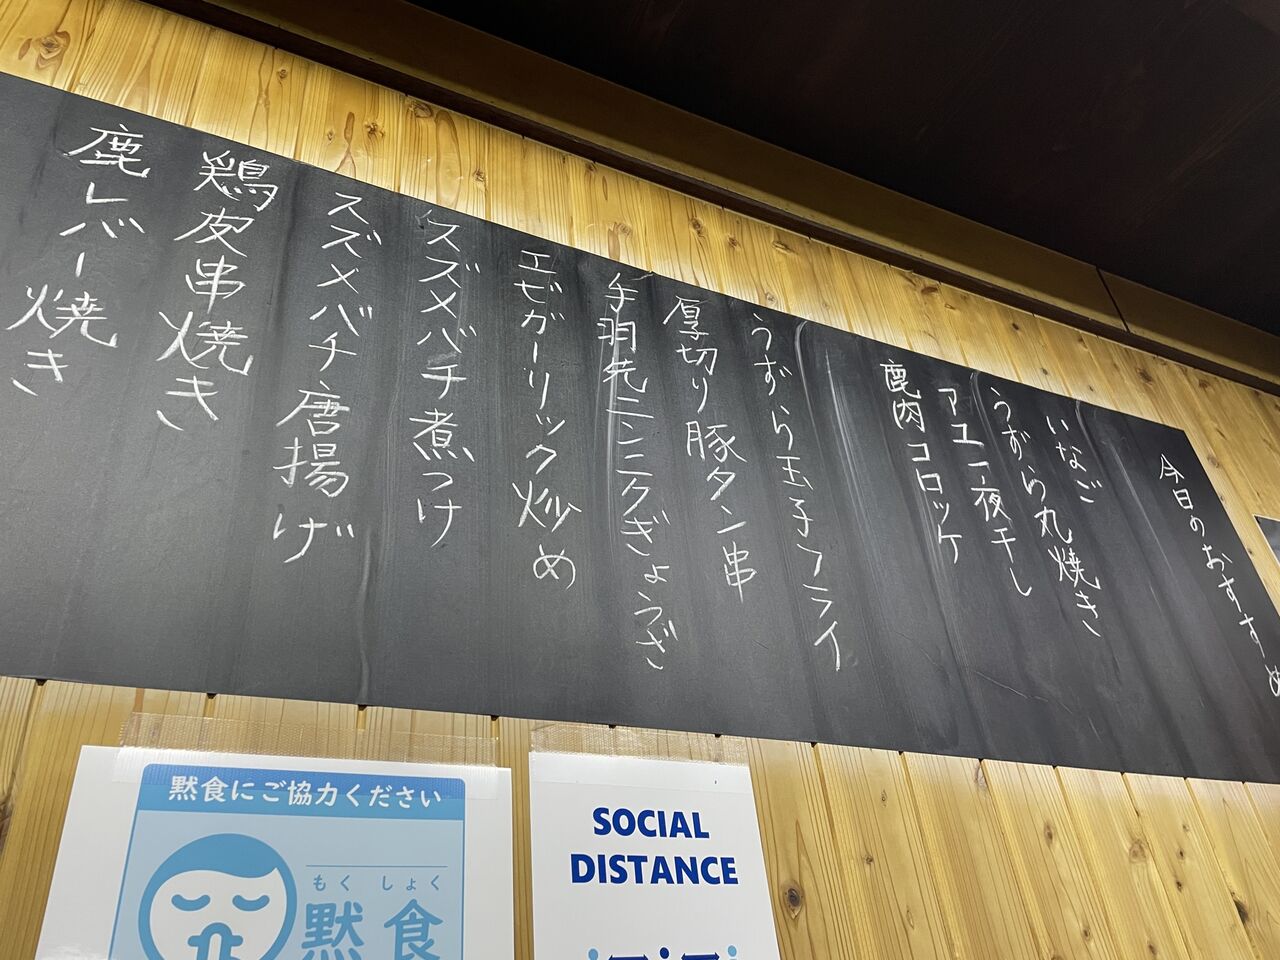 今日のおすすめ
いなご
うずら丸焼き
アユ一夜干し
鹿肉コロッケ
うずら玉子フライ
厚切り豚タン串
手羽先ニンニクぎょうざ
エゼガーリック炒め
スズメバチ煮つけ
スズメバチ唐揚げ
鶏皮串焼き
鹿レバー焼き
黙食にご協力ください
もくしょく
黙食
SOCIAL
DISTANCE